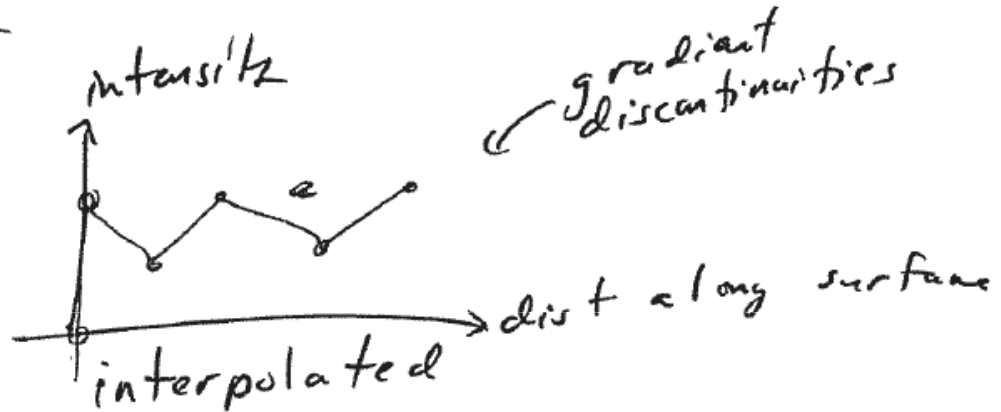 intensity
gradiant
discontinuities
a
dist along surface
interpolated